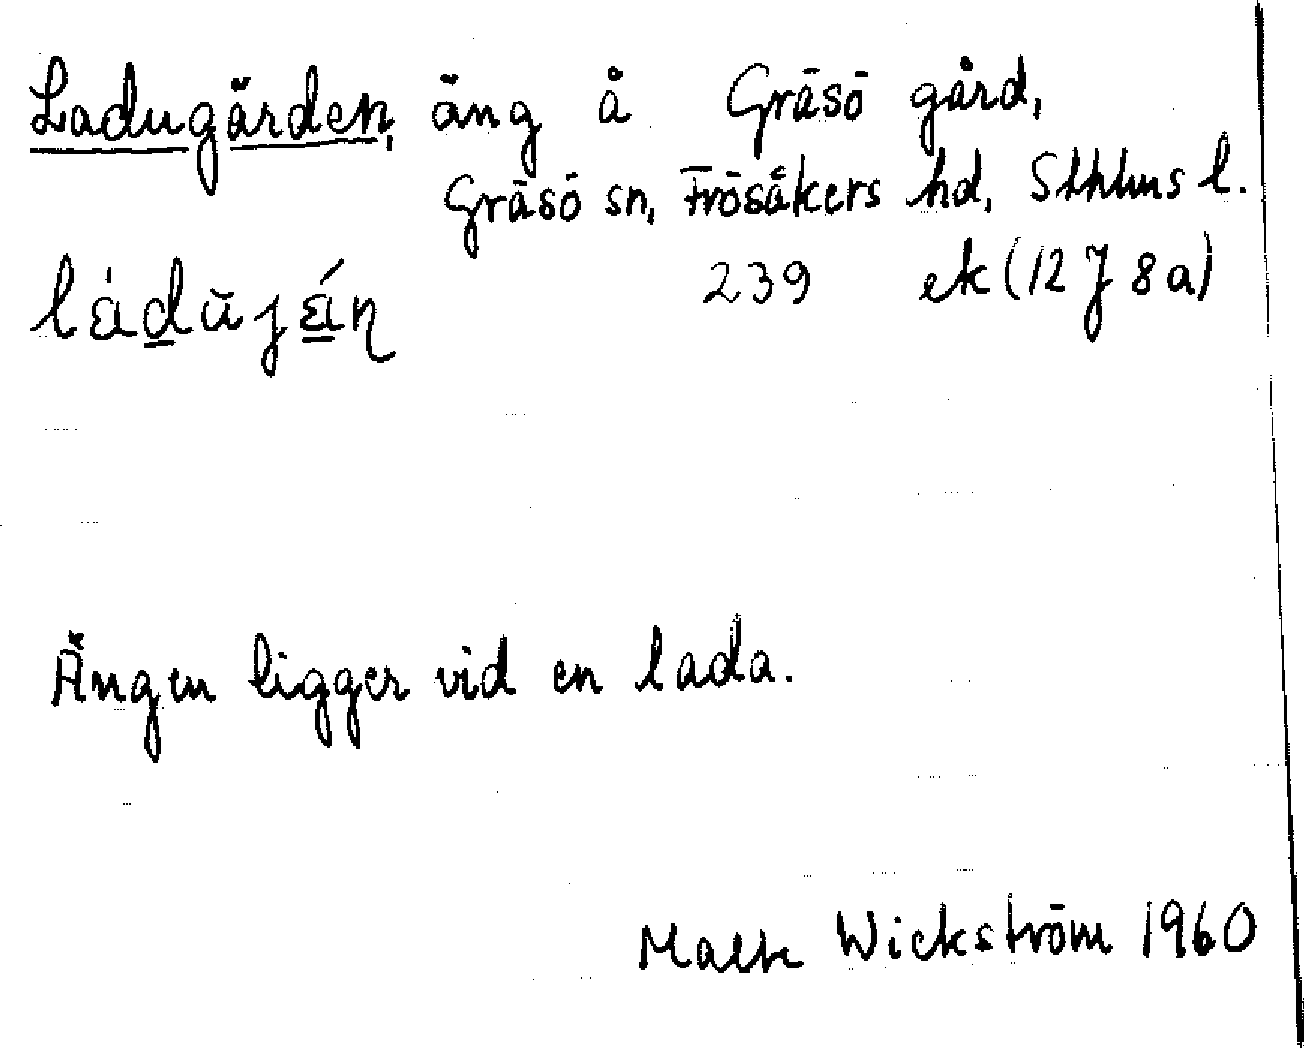 Ladugården, äng å Gräsö gård,
Gräsö sn, Frösåkers hd, Sthlms l.
239 ek (12 J 8 a)
Ängen ligger vid en lada.
Malte Wickström 1960